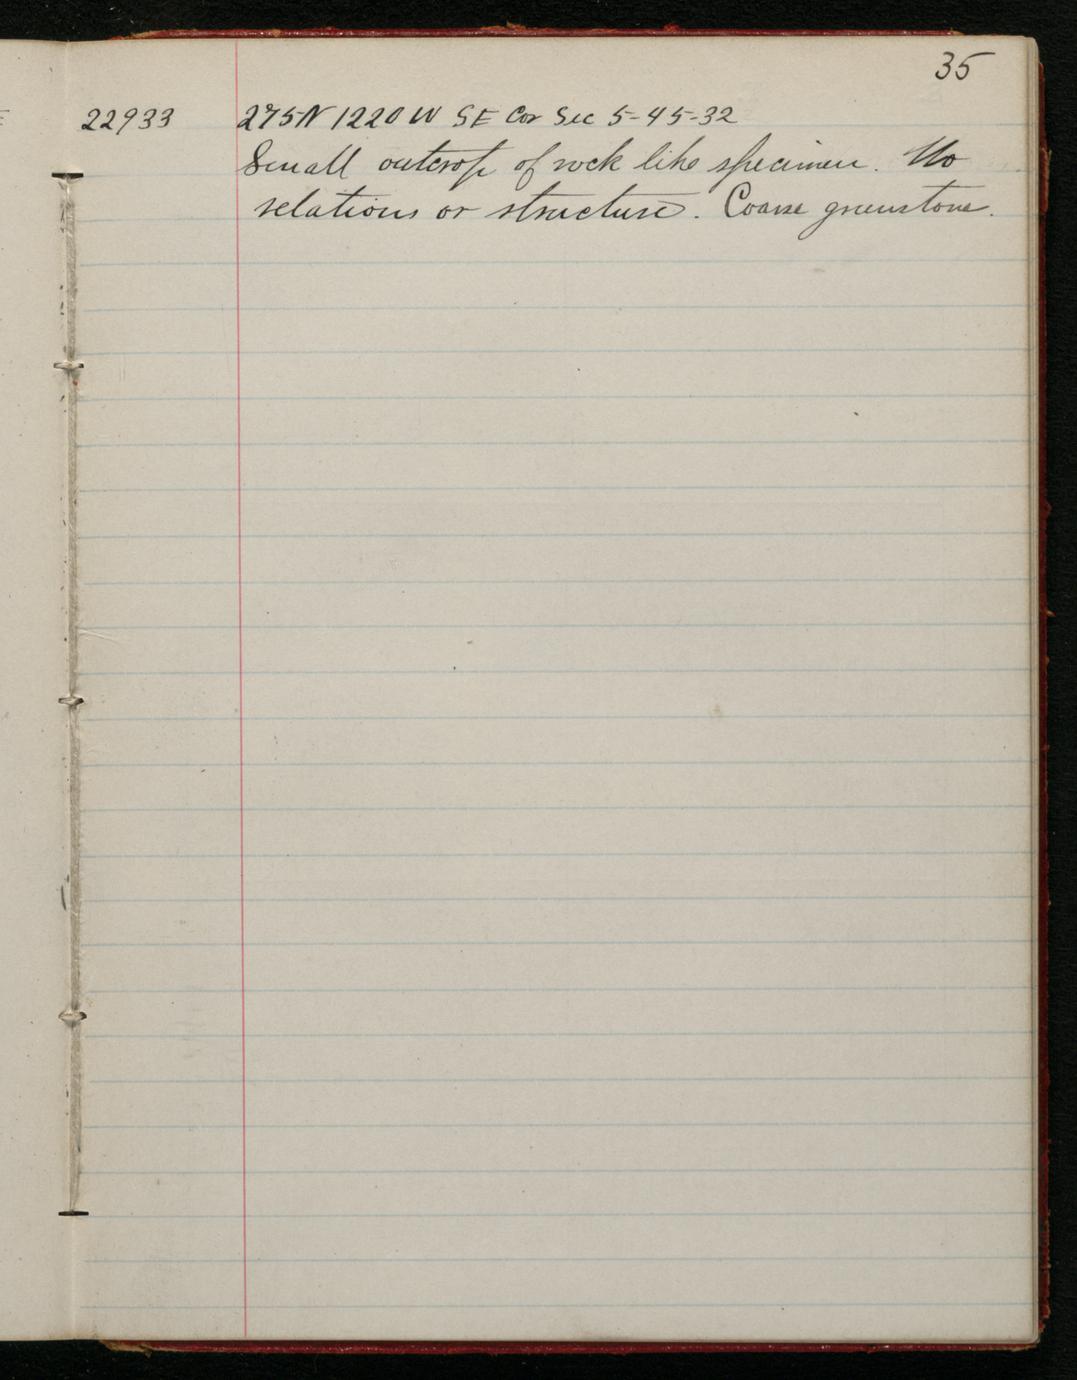 35
22933 275N 1220 W SE Cor Sec 5-45-32
Small outcrop of rock like specimen. No
relations or structure. Coarse greenstone.